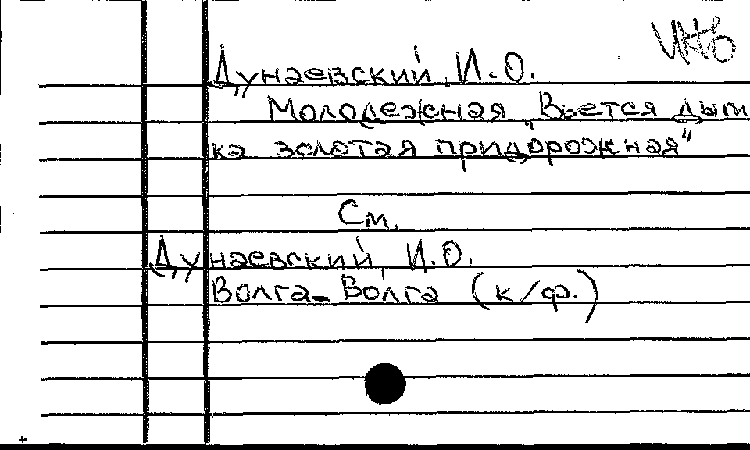 Дунаевский, И.О.
Молодежная „Вьется дым
ка золотая придорожная"
См.
Дунаевский, И.О.
Волга-Волга (к/ф.)